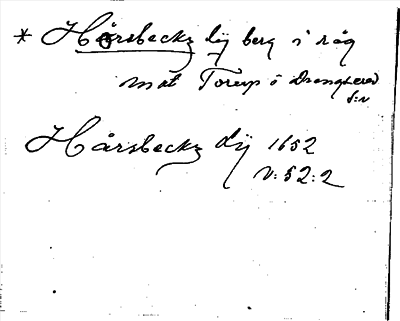 * Hårsbeckz dÿ berg i råg
mot Torup o Drengsered
s:n
Hårsbeckz dÿ 1652
V: 52: 2